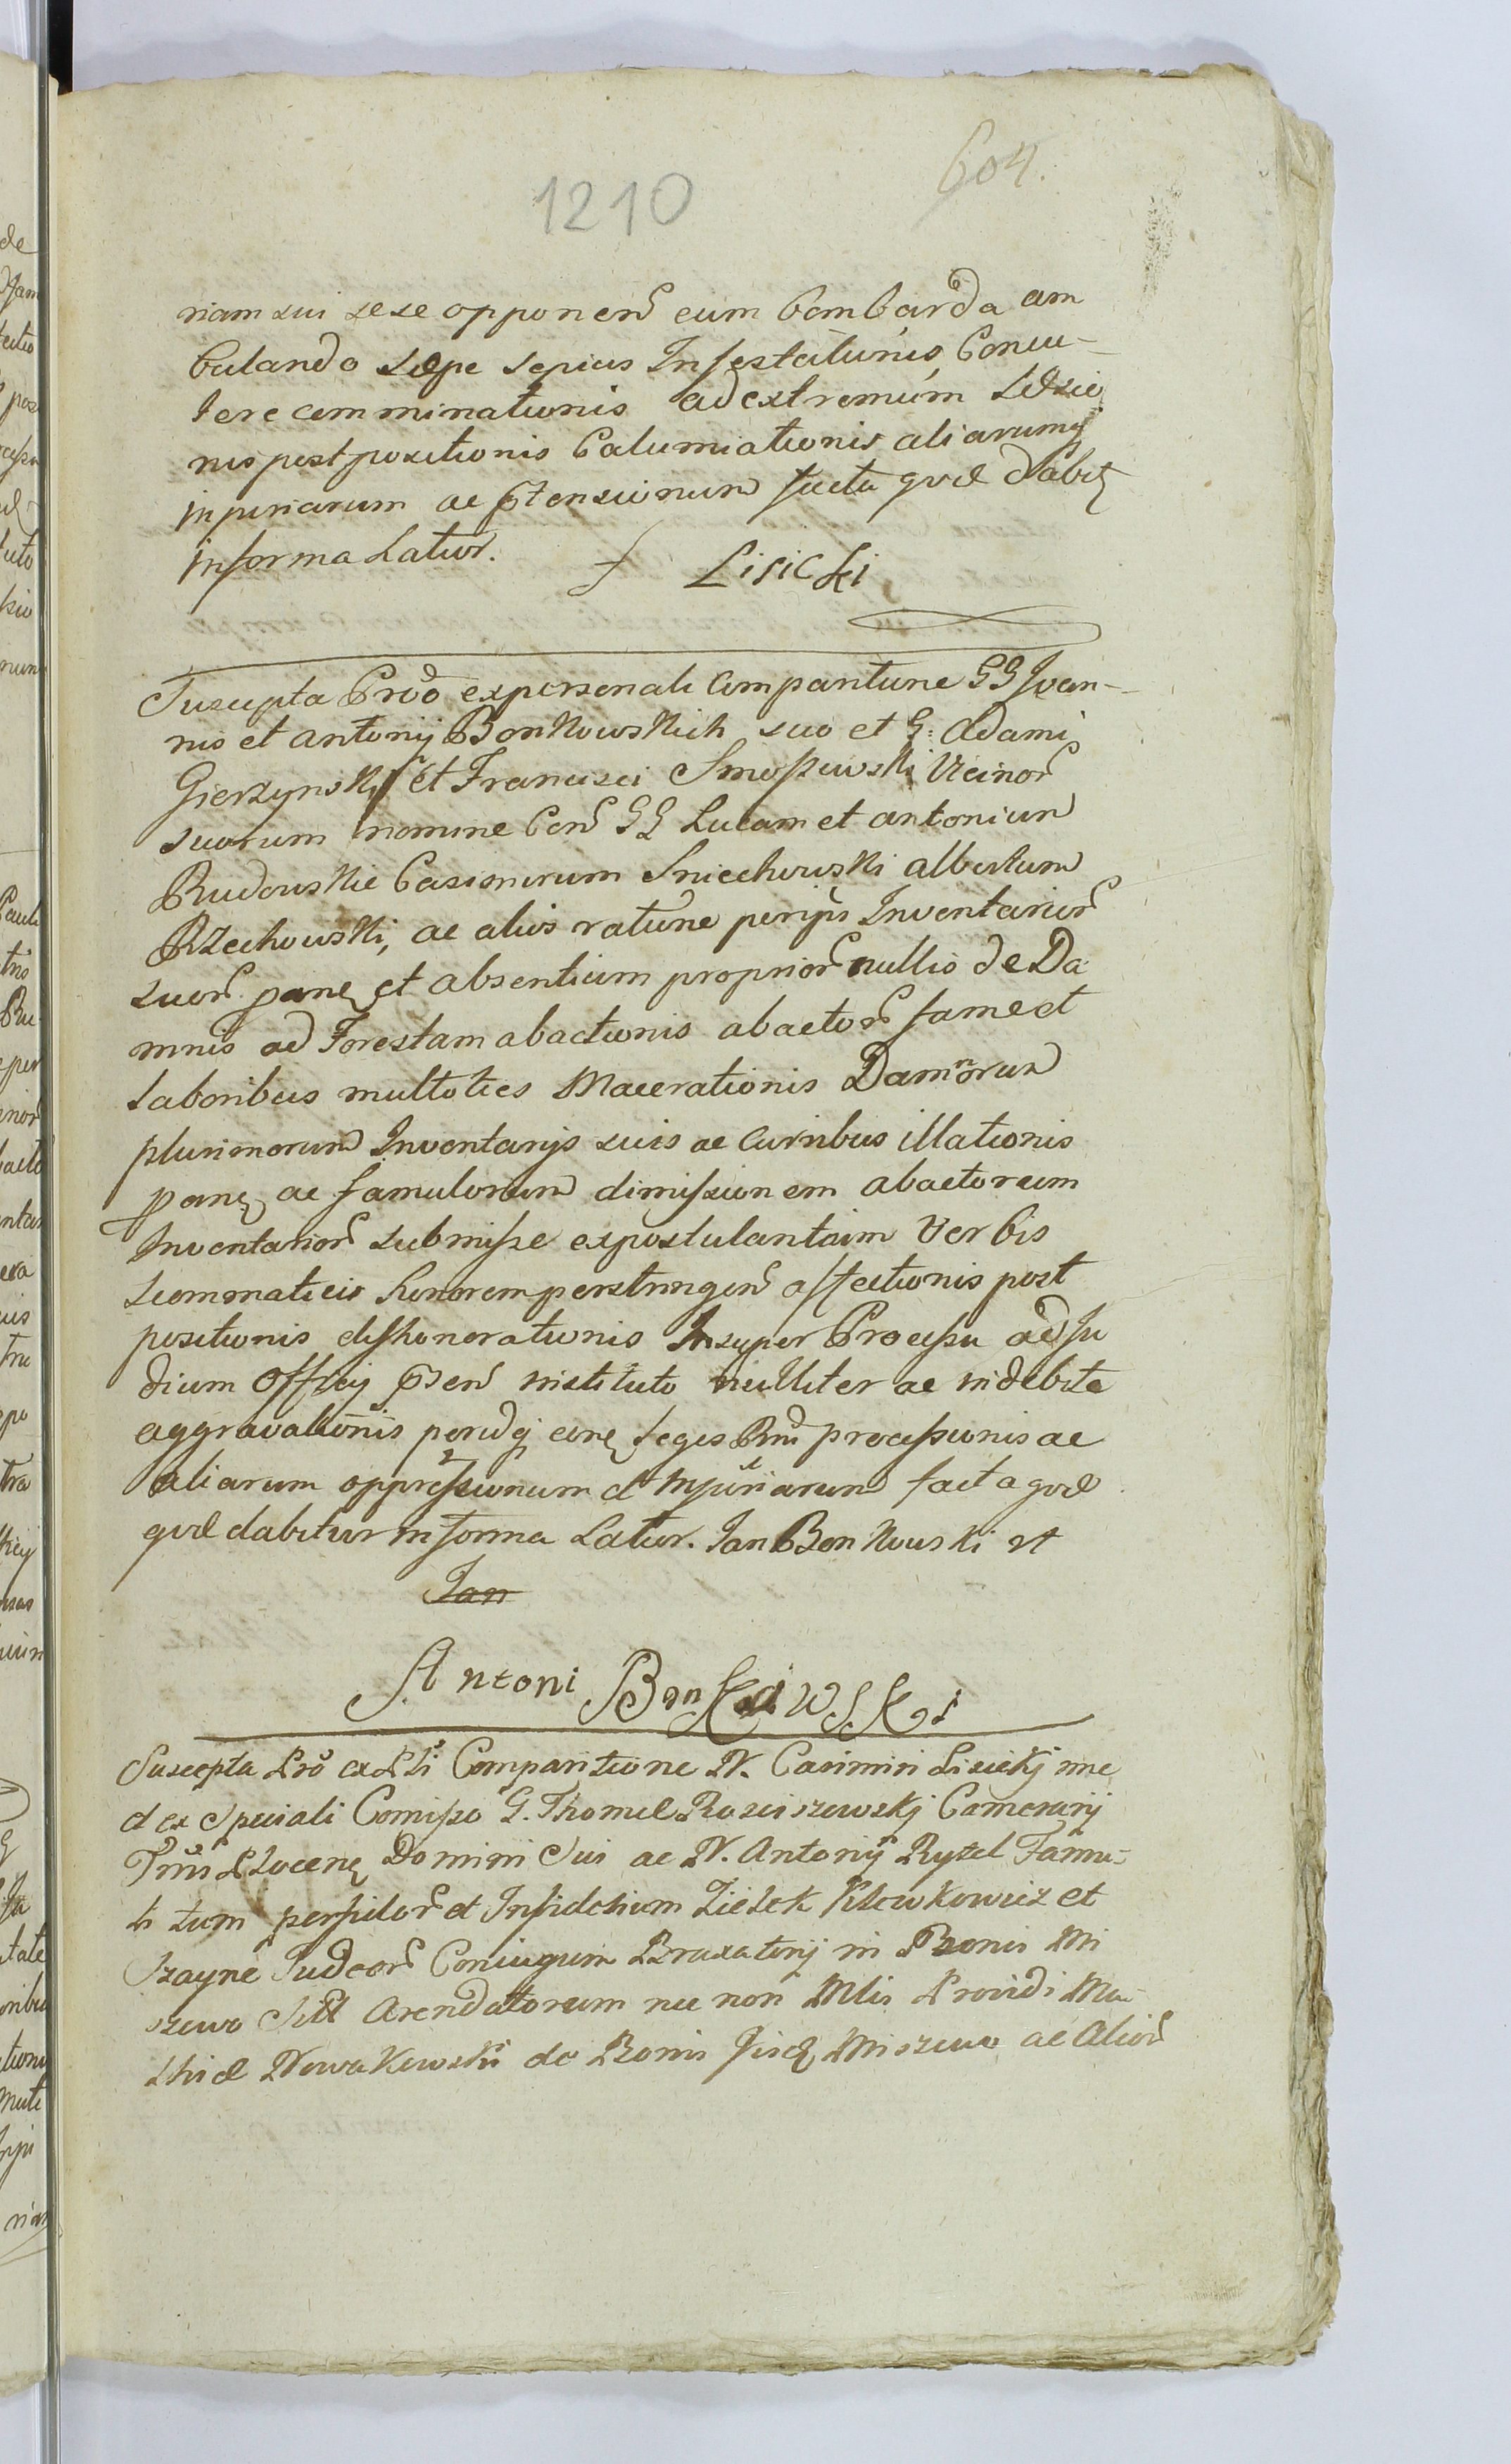 604.
1210
niam sui sese opponen eum bombarda am
bulando sæpe sepius Infestationis, Concu-
tere comminationis ad extremum Læsio
nis postpositionis Calumiationis aliarumq
injuriarum ac ptensionum facta quæ dabit
informa Latior. Lisicki
Suscepta Pro ex personali Comparitione GG Joan-
nis et antonij Bonkowskich suo et G: Adami
Gierzynski et Francisci Smoszewski Vicinor
suorum nomine Con GG Lucam et antonium
Rudowskie Casimirum Sniechowski albertum
Rzechowski, ac alios ratione Inventarior
suor pane et absentium proprior nullis de Da
mnis ad Forestam abactionis abactor fame et
laboribus multoties Macerationis Damnorum
plurimorum Inventarijs suis ac Curribus illationis
pane ac famulorum dimissionem abactorum
Inventarior submisse expostulantium Verbis
scommaticis honorem perstringen affectionis post
positionis dishonorationis Insuper Processu ad Ju
dicium Officij psen instituto nulliter ac indebite
aggravationis leges Rni processionis ac
aliarum oppressionum et Injuriarum facta quæ
quæ dabitur in forma Latior. Jan Bonkowski et
Jan
Antoni Bonkowski
Suscepta Pro Comparitione N. Casimiri Lisickj
et ex Speciali Comisso G. Thomæ Rosciszewskj Camerarij
Domini Sui ac N. Antonij Rytel Famu-
li tum perfidor et Infidelium Ziełek Kłowkowicz et
Szayne Judeor Coniugum Braxatorij in Bonis Mi
szewo Arendatorum nec non Providi Ma
thiæ Nowakowski de Bonis Miszewo ac Alior